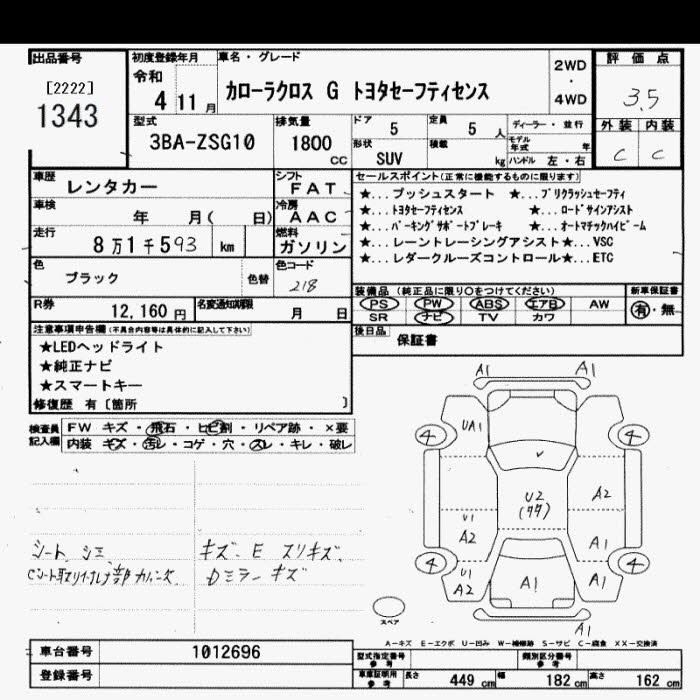 出品番号
[2222]
1343
初度登録年月
令和
4 11月
車名・グレード
カローラクロス G トヨタセーフティセンス
2WD
・
4WD
評価点
3.5
外装 内装
C C
型式
3BA-ZSG10
排気量
1800
cc
ドア
5
定員
5 人
形状
SUV
積載
kg
ディーラー・並行
モデル年式 年
ハンドル 左・右
車歴
レンタカー
シフト
FAT
車検
年 月( 日)
冷房
AAC
走行
8万1千593 km
燃料
ガソリン
色
ブラック
色替
色コード
218
R券
12,160 円
名変通知期限
月 日
セールスポイント(正常に機能するものに限ります)
★...プッシュスタート ★...プリクラッシュセーフティ
★...トヨタセーフティセンス ★...ロードサインアシスト
★...パーキングサポートブレーキ ★...オートマチックハイビーム
★...レーントレーシングアシスト★...VSC
★...レダークルーズコントロール★...ETC
装備品(純正品に限り○をつけてください)
PS PW ABS エアB AW
SR ナビ TV カワ
新車保証書
有・無
後日品
保証書
注意事項申告欄(不具合内容等は具体的に記入して下さい)
★LEDヘッドライト
★純正ナビ
★スマートキー
修復歴 有〔箇所 〕
検査員記入欄
FW キズ・飛石・ヒビ割・リペア跡・×要
内装 キズ・汚レ・コゲ・穴・スレ・キレ・破レ
シート シミ
Cシート取リツケレグ部カバーズ
キズ E スリキズ
Dミラーキズ
A1 A1
UA1
4 4
U2
A2
U1
A2
A1
4 4
U1
A2
A1
A1
A1
スペア
A-キズ E-エクボ U-凹み W-補修跡 S-サビ C-腐食 XX-交換済
車台番号
1012696
登録番号
型式指定番号
参考
類別区分番号
参考
車庫証明用
参考
長さ 449 cm 幅 182 cm 高さ 162 cm